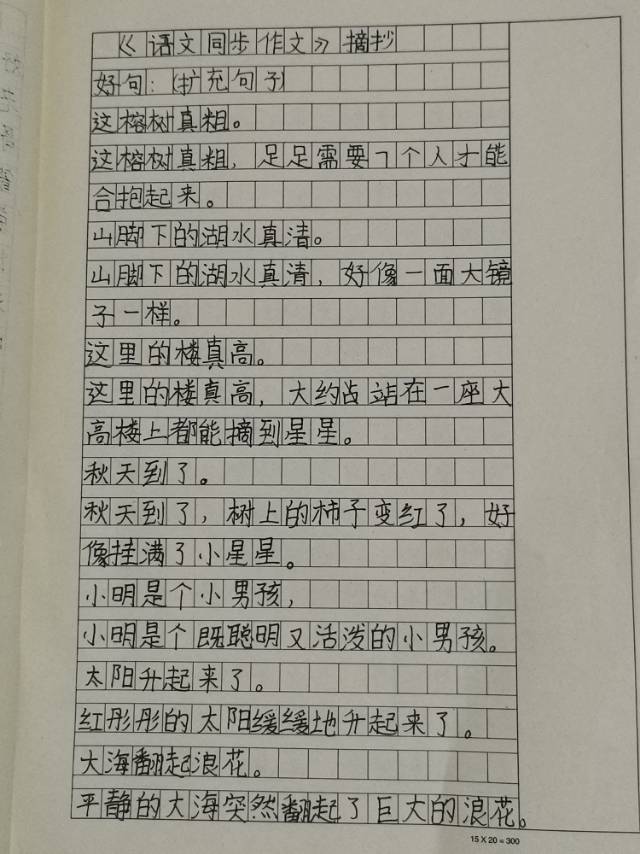 《语文同步作文》摘抄
好句：（扩充句子）
这榕树真粗。
这榕树真粗，足足需要7个人才能
合抱起来。
山脚下的湖水真清。
山脚下的湖水真清，好像一面大镜
子一样。
这里的楼真高。
这里的楼真高，大约占站在一座大
高楼上都能摘到星星。
秋天到了。
秋天到了，树上的柿子变红了，好
像挂满了小星星。
小明是个小男孩，
小明是个既聪明又活泼的小男孩。
太阳升起来了。
红彤彤的太阳缓缓地升起来了。
大海翻起浪花。
平静的大海突然翻起了巨大的浪花。
15×20=300